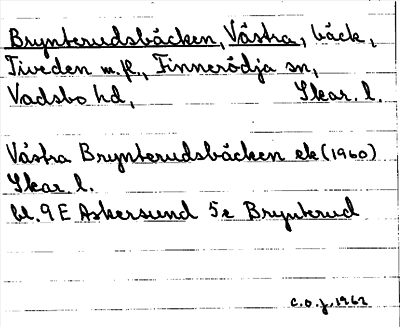 Brynterudsbäcken, Västra, bäck,
Tiveden m.fl., Finnerödja sn,
Vadsbo hd, Skar. l.
Västra Brynterudsbäcken ek (1960)
Skar. l.
bl. 9 E Askersund 5e Brynterud
C.O.J. 1962